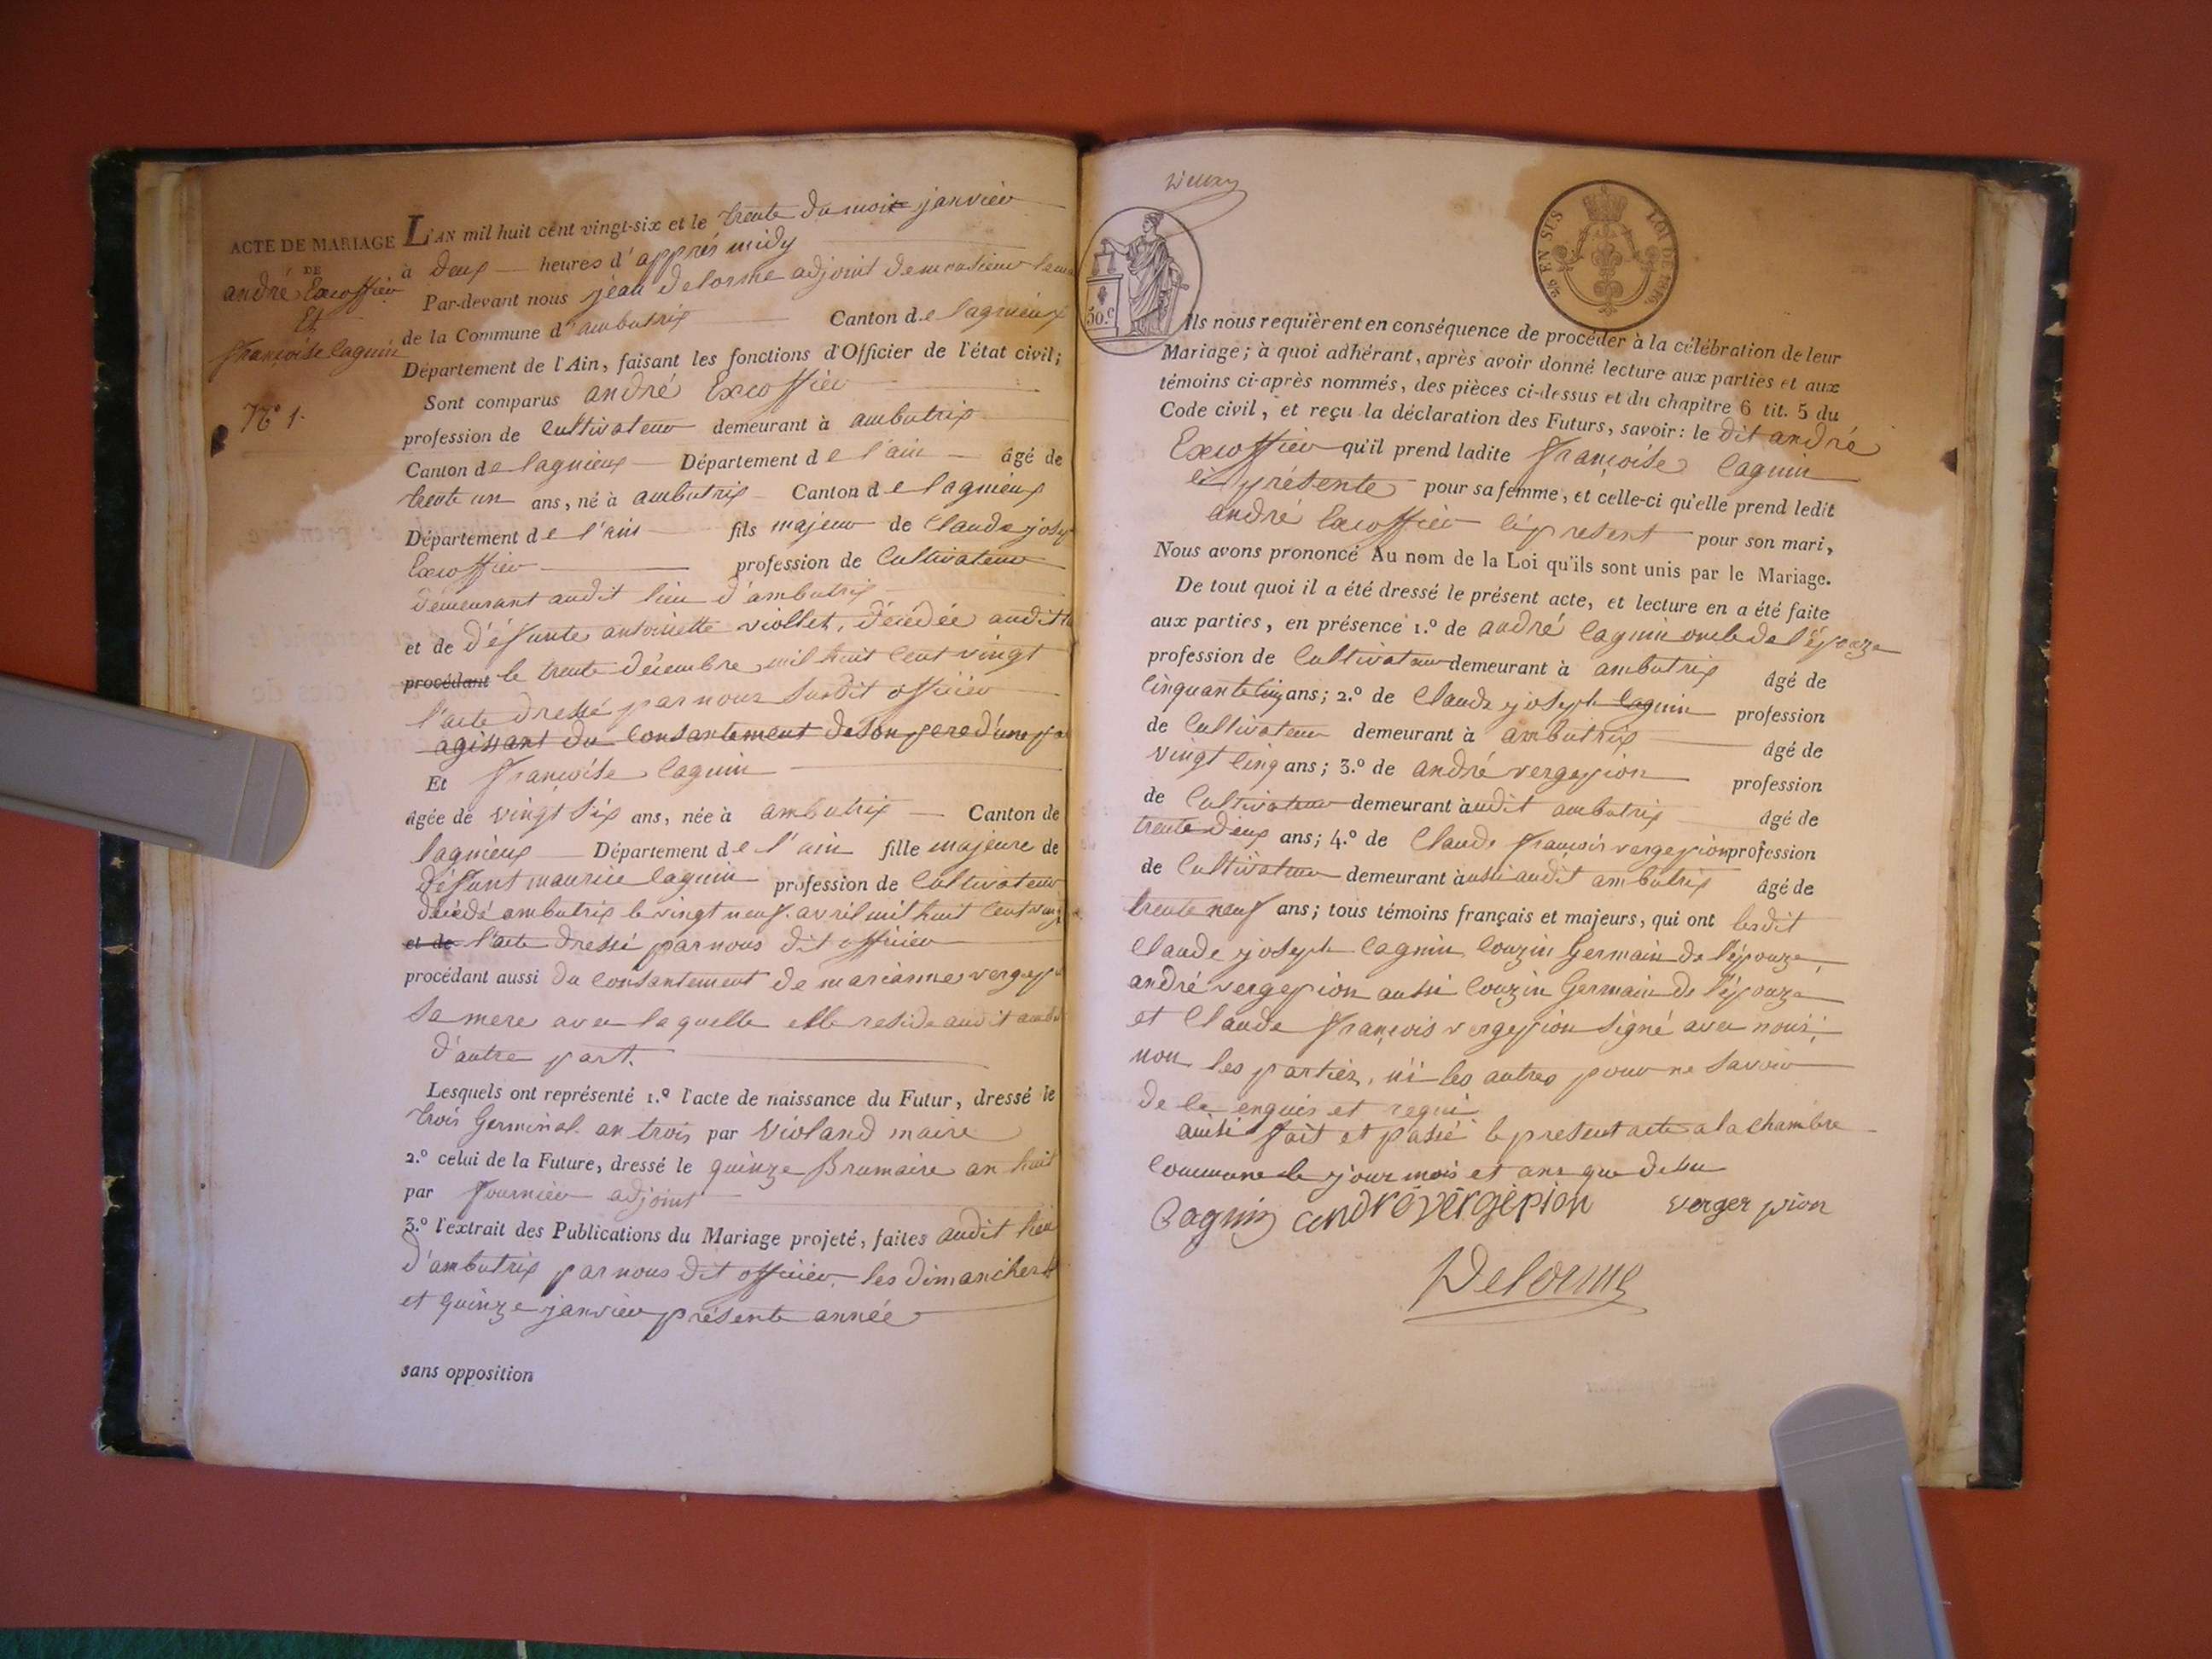 ACTE DE MARIAGE
DE
andré Excoffier
Et
françoise Cagnin
N.º 1.
L'AN mil huit cent vingt-six et le trente du mois janvier
à deux heures d'apprés midy
Par-devant nous jean Delorme adjoint de monsieur
de la Commune d'ambutrix Canton de lagnieux
Département de l'Ain, faisant les fonctions d'Officier de l'état civil;
Sont comparus andré Excoffier
profession de Cultivateur demeurant à ambutrix
Canton de lagnieux Département de l'ain âgé de
trente un ans, né à ambutrix Canton de lagnieux
Département de l'ain fils majeur de Claude josep
Excoffier profession de Cultivateur
demeurant audit lieu d'ambutrix
et de défunte antoinette viollet, décédée audit
procédant le trente décembre mil huit Cent vingt
l'acte dressé par nous susdit officier
agissant du Consantement de son pere d'une
Et françoise Cagnin
âgée de vingt six ans, née à ambutrix Canton de
lagnieux Département de l'ain fille majeure de
défunt maurice Cagnin profession de Cultivateur
décédé ambutrix le vingt neuf avril mil huit Cent
et de l'acte dressé par nous dit officier
procédant aussi du Consantement de marianne
sa mere avec laquelle elle reside audit
d'autre part.
Lesquels ont représenté 1.º l'acte de naissance du Futur, dressé le
trois Germinal an trois par Violand maire
2.º celui de la Future, dressé le quinze Brumaire an huit
par fournier adjoint
3.º l'extrait des Publications du Mariage projeté, faites audit lieu
d'ambutrix par nous dit officier les dimanches
et quinze janvier présente année
sans opposition
30.c
25 EN SUS
LOI DE 1816.
Ils nous requièrent en conséquence de procéder à la célébration de leur
Mariage; à quoi adhérant, après avoir donné lecture aux parties et aux
témoins ci-après nommés, des pièces ci-dessus et du chapitre 6 tit. 5 du
Code civil, et reçu la déclaration des Futurs, savoir: le dit andré
Excoffier qu'il prend ladite françoise Cagnin
présente pour sa femme, et celle-ci qu'elle prend ledit
andré Excoffier present pour son mari,
Nous avons prononcé Au nom de la Loi qu'ils sont unis par le Mariage.
De tout quoi il a été dressé le présent acte, et lecture en a été faite
aux parties, en présence 1.º de andré Cagnin oncle de l'épouze
profession de Cultivateur demeurant à ambutrix âgé de
Cinquante Cinq ans; 2.º de Claude joseph Cagnin profession
de Cultivateur demeurant à ambutrix âgé de
vingt Cinq ans; 3.º de andré vergepion profession
de Cultivateur demeurant àudit ambutrix âgé de
trente deux ans; 4.º de Claude françois vergepion profession
de Cultivateur demeurant àussi audit ambutrix âgé de
trente neuf ans; tous témoins français et majeurs, qui ont lesdit
Claude joseph Cagnin Couzin Germain de l'épouze,
andré vergepion aussi Couzin Germain de l'épouze
et Claude françois vergepion signé avec nous;
non les parties, ni les autres pour ne savoir
de ce enquis et requi
ainsi fait et passé le present acte a la chambre
Commune le jour mois et ans que dessu
Cagnin andré vergepion verger pion
Delorme